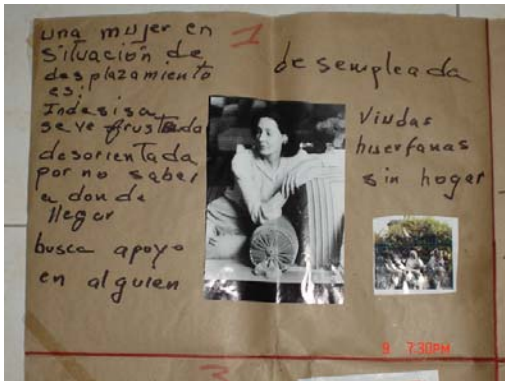 una mujer en
situación de
desplazamiento
es:
Indesisa
se ve frustada
desorientada
por no saber
a donde
llegar
busca apoyo
en alguien
1
desempleada
Viudas
huerfanas
sin hogar
9 7:30PM
3